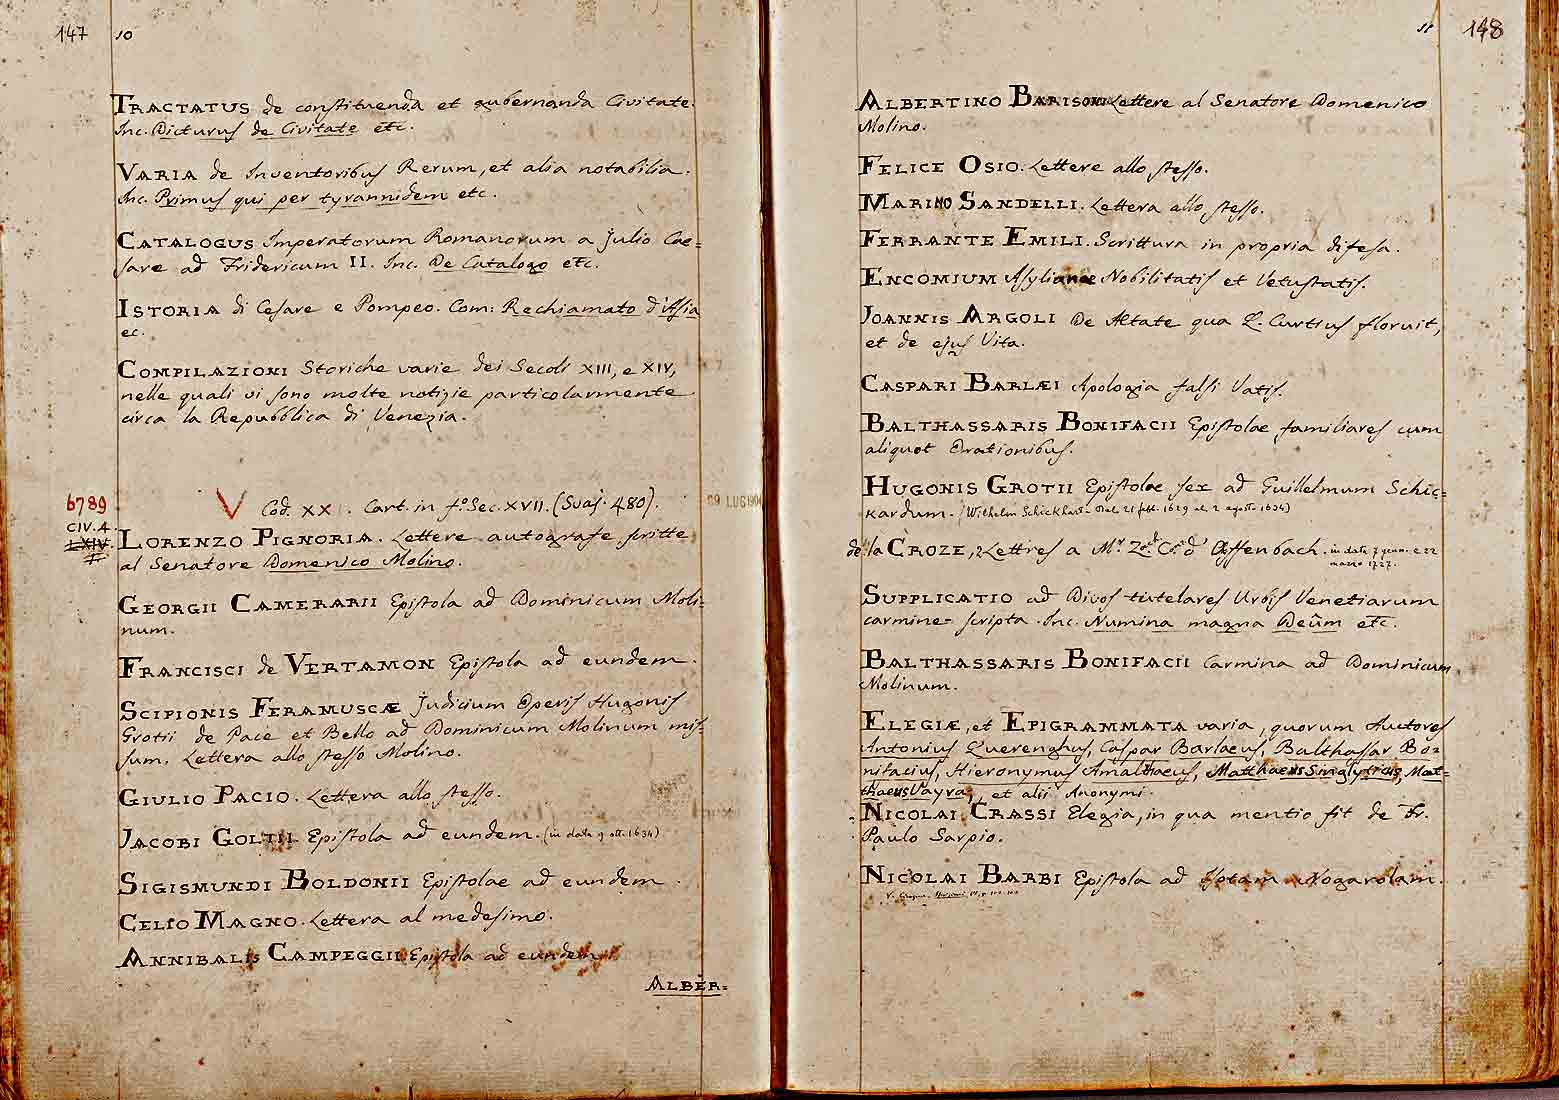 147 10
TRACTATUS de constituenda et gubernanda Civitate.
Inc. Dicturus de Civitate etc.
VARIA de Inventoribus Rerum, et alia notabilia.
Inc. Primus qui per tyrannidem etc.
CATALOGUS Imperatorum Romanorum a Julio Cae=
sare ad Fridericum II. Inc. De Catalogo etc.
ISTORIA di Cesare e Pompeo. Com: Rechiamato d'Asia
ec.
COMPILAZIONI Storiche varie dei Secoli XIII, e XIV,
nelle quali vi sono molte notizie particolarmente
circa la Repubblica di Venezia.
6789
CIV. 4.
LXIV
V Cod. XX. Cart. in f.º Sec. XVII. (Svaj. 480).
LORENZO PIGNORIA. Lettere autografe scritte
al Senatore Domenico Molino.
GEORGII CAMERARII Epistola ad Dominicum Moli=
num.
FRANCISCI de VERTAMON Epistola ad eundem.
SCIPIONIS FERAMUSCÆ Judicium Operis Hugonis
Grotii de Pace et Bello ad Dominicum Molinum mis=
sum. Lettera allo stesso Molino.
GIULIO PACIO. Lettera allo stesso.
JACOBI GOLTII Epistola ad eundem. (in data 9 ott. 1634)
SIGISMUNDI BOLDONII Epistolae ad eundem.
CELIO MAGNO. Lettera al medesimo.
ANNIBALIS CAMPEGGII Epistola ad eundem.
ALBER=
09 LUG 190
11 148
ALBERTINO BARISONI Lettere al Senatore Domenico
Molino.
FELICE OSIO. Lettere allo stesso.
MARINO SANDELLI. Lettera allo stesso.
FERRANTE EMILI. Scrittura in propria difesa.
ENCOMIUM Asylianae Nobilitatis et Vetustatis.
JOANNIS ARGOLI De Aetate qua Q. Curtius floruit,
et de ejus Vita.
CASPARI BARLÆI Apologia falsi Vatis.
BALTHASSARIS BONIFACII Epistolae familiares cum
aliquot Orationibus.
HUGONIS GROTII Epistolae sex ad Guillelmum Schic=
Kardum. (Wilhelm Schickhard - dal 21 sett. 1629 al 2 agosto 1634)
de la CROZE, 2 Lettres a Mr. d' Offenbach. in data 7 genn. e 22
marzo 1727.
SUPPLICATIO ad Divos tutelares Urbis Venetiarum
carmine scripta. Inc. Numina magna Deûm etc.
BALTHASSARIS BONIFACII Carmina ad Dominicum
Molinum.
ELEGIÆ, et EPIGRAMMATA varia, quorum Auctores
Antonius Querenghus, Caspar Barlaeus, Balthassar Bo=
nifacius, Hieronymus Amalthaeus, Matthaeus Singlyticus, Mat=
thaeus Vayra, et alii Anonymi.
NICOLAI CRASSI Elegia, in qua mentio fit de Fr.
Paulo Sarpio.
NICOLAI BARBI Epistola ad Isotam Nogarolam.